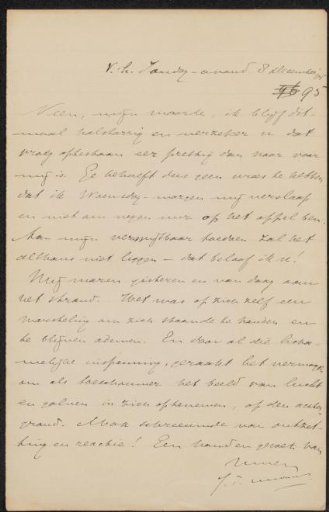 v. h. Zondag-avond 8 december
95
Neen, mijn waarde, ik blijf dit-
maal halstarrig en verzeker u dat
vroeg opstaan eer prettig dan naar voor
mij is. Ge behoeft dus geen vrees te hebben
dat ik Woensdag-morgen mij verslaap
en niet om negen uur op het appel ben.
Aan mijn zal het
althans niet liggen — dat beloof ik u!
Wij waren gisteren en van daag aan
het strand. Het was op zich zelf een
worsteling om zich staande te houden en
te blijven ademen. En door al die licha-
melijke inspanning, geraakt het vermogen
om als toeschouwer het beeld van lucht
en golven in zich opnemen, op den achter-
grond. Maar van
en reactie! Een handen groet van
uwen